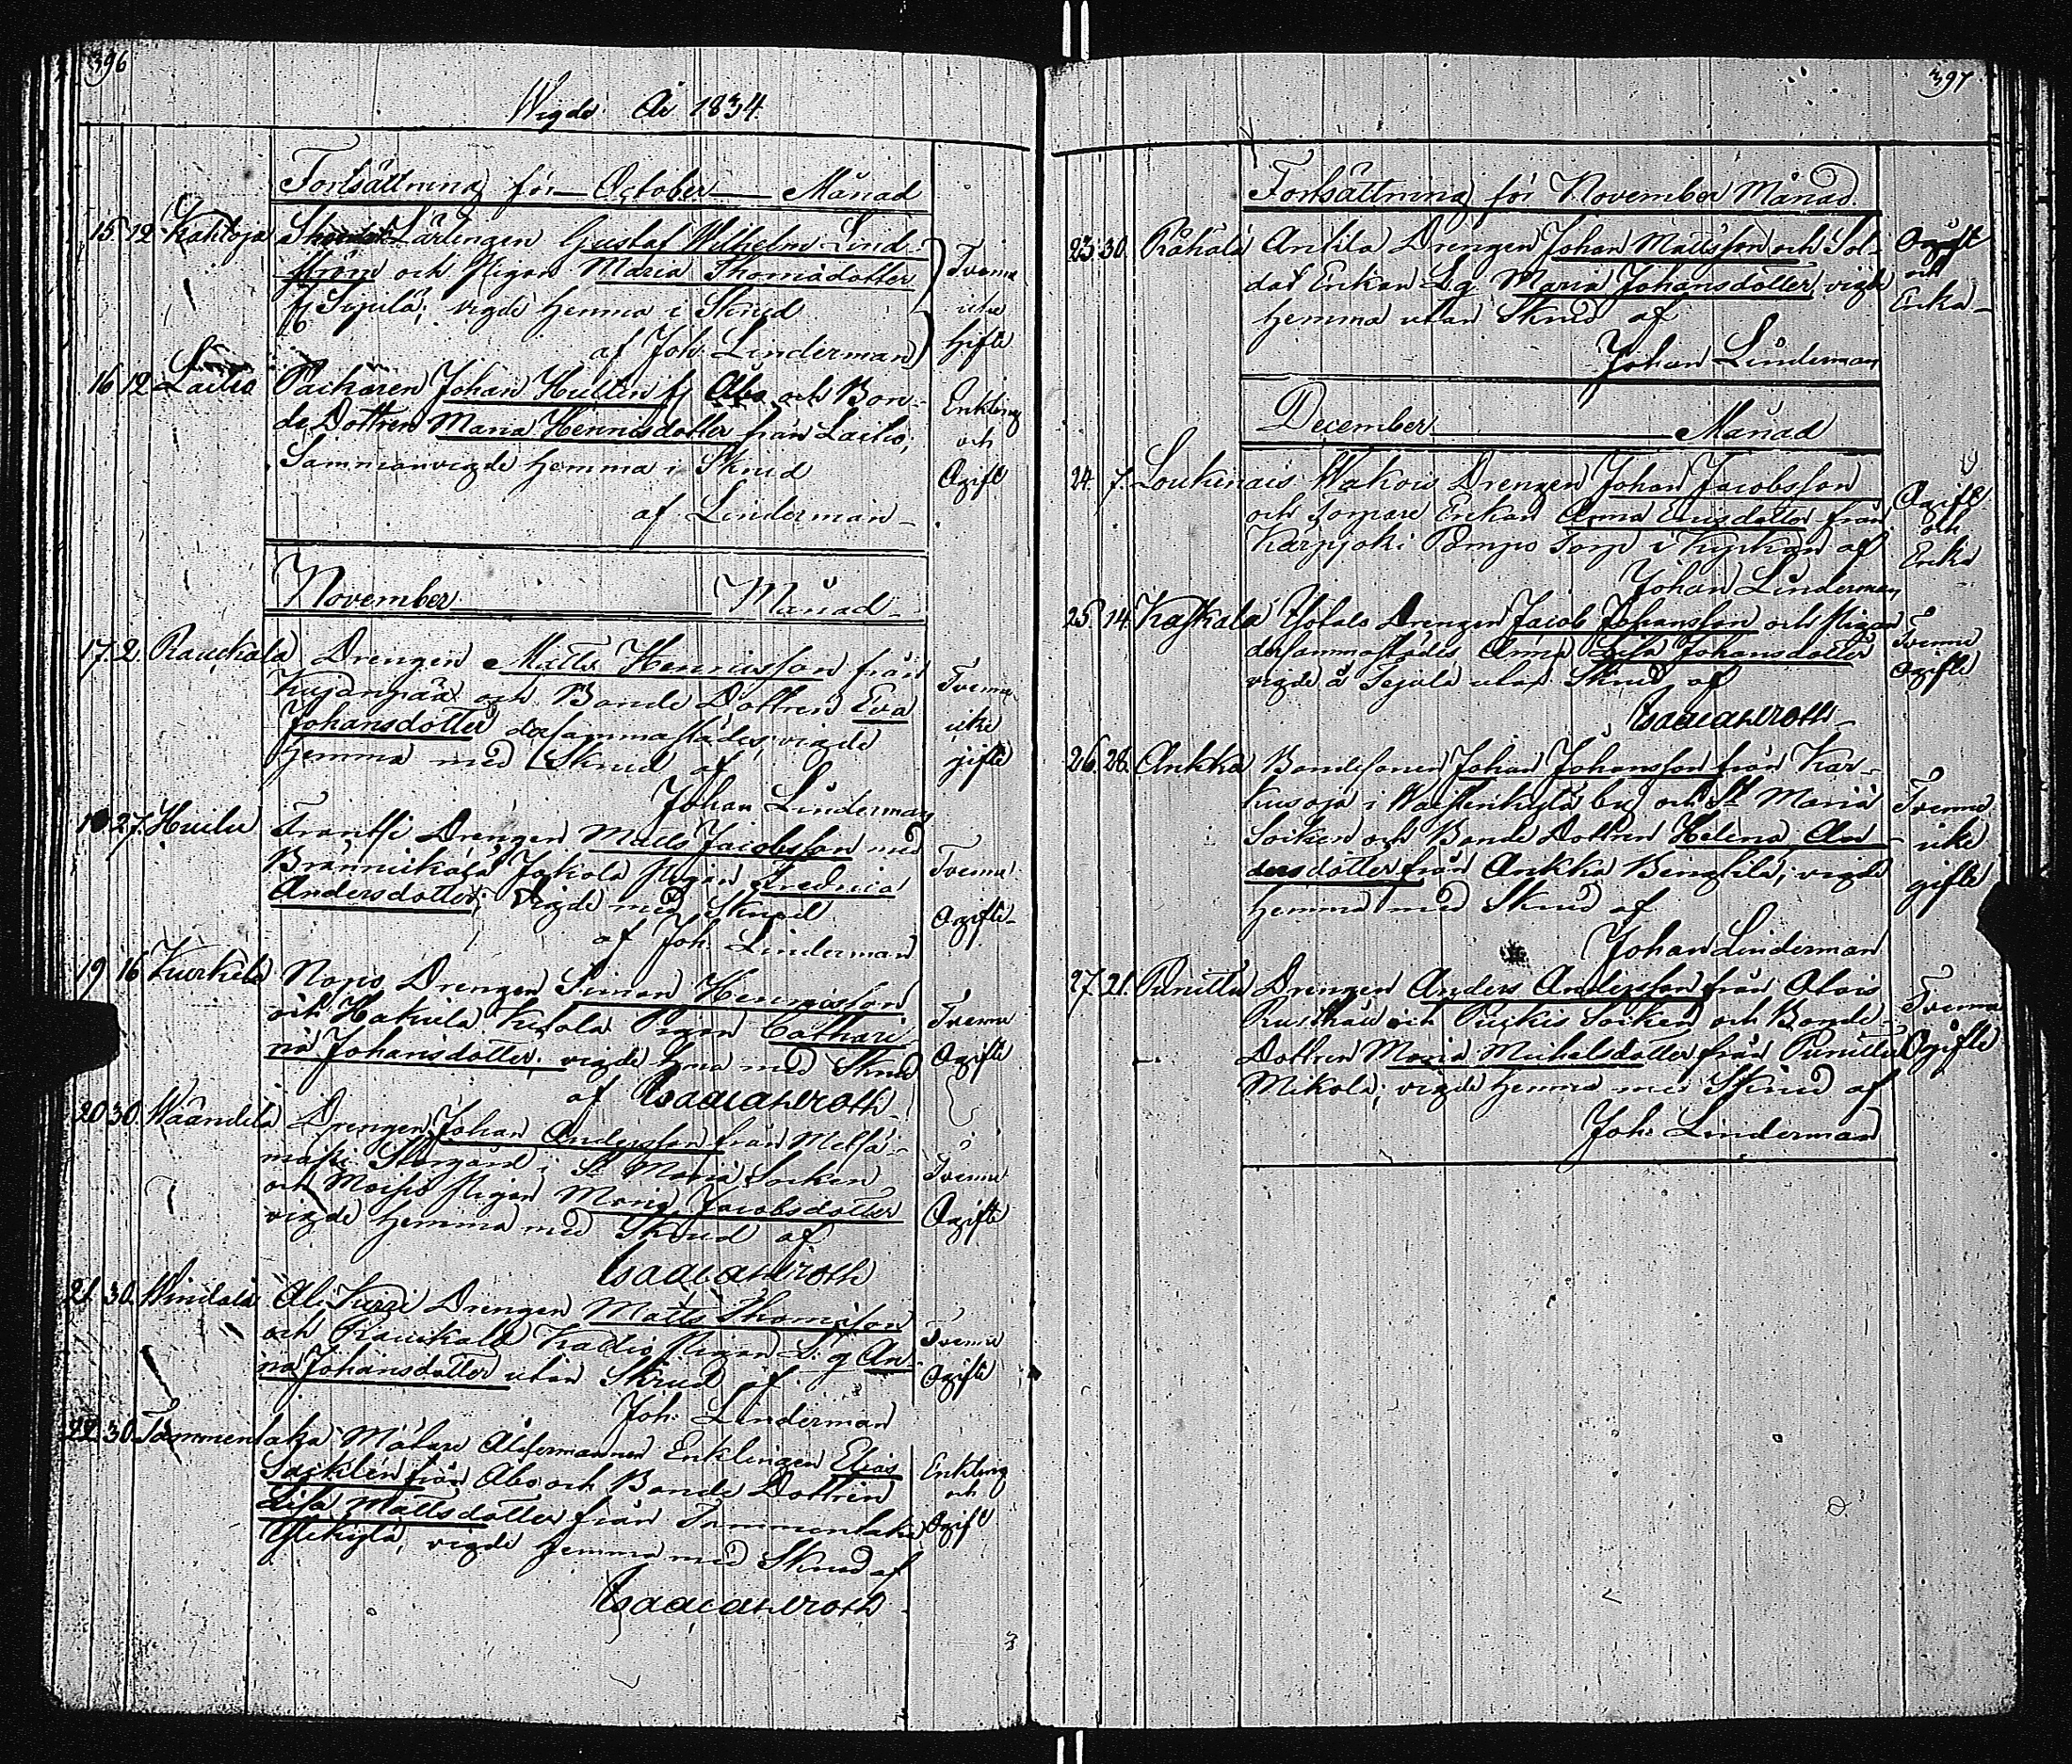 396
Wigde År 1834.
Fortsättning för October Månad
15 12 Kahloja Lärlingen Gustaf Wilhelm Lind-
ström och Pigan Maria Thomædotter
fj Sepilä; vigde hemma i Skrud
af Joh. Linderman
Tvenne
icke
gifte
16 12 Laitio Packaren Johan Hultin fj Åbo och Bon-
de Dottren Maria Henricsdotter från Laitio;
Sammanvigde hemma i Skrud
af Linderman
Enkling
och
Ogift
November Månad
17. 2. Raukola Drengen Matts Henricsson från
Kujanpää och Bonde Dottren Eva
Johansdotter dersammastädes; vigde
hemma med Skrud af
Johan Linderman
Tvenne
icke
gifte
27. Huilu Drengen Matts Jacobsson med
Jakola Pigan Fredrica
Andersdotter; Vigde med Skrud
af Joh. Linderman
Tvenne
Ogifte
19 16 Kurkela Nopo Drengen Simon Henricsson
och Hakuila Kujola Pigan Cathari-
na Johansdotter, vigde hma med Skrud
af Isaac Ahlroth
Tvenne
Ogifte
20 30. Wäändilä Drengen Johan Andersson från
Storgård i St Maria Socken
och Moisio Pigan Maria Jacobsdotter
vigde hemma med Skrud af
Isaac Ahlroth
Tvenne
Ogifte
21. 30. Windala Ali Kirri Drengen Matts Thomasson
och Raukola Pigan L. g An-
na Johansdotter utan Skrud af
Joh. Linderman
Tvenne
Ogifte
22. 30. Tammenlaka Målare Åldermannen Enklingen Elias
från Åbo och Bonde Dottren
Lisa Mattsdotter från Tammenlaka
Ylikylä, vigde hemma med Skrud af
Isaac Ahlroth
Enkling
och
Ogift
397
Fortsättning för November Månad.
23. 30. Råkälä Antila Drengen Johan Mattsson och Sol-
dat Enkan L.g. Maria Johansdotter vigde
hemma utan Skrud af
Johan Linderman
Ogift
och
Enka
December Månad
24. 7. Loukinais Wakois Drengen Johan Jacobsson
och Torpare Enkan Anna Ericsdotter från
Karpjoki Pompo Torp i Kyrkan af
Johan Linderman
Ogift
och
Enka
25. 14. Kaskala Drengen Jacob Johansson och Pigan
dersammastädes Anna Lisa Johansdotter
vigde å utan Skrud af
Isaac Ahlroth
Tvenne
Ogifte
26. 28. Ankka Bondesonen Johan Johansson från Kar-
kusoja i by och St Maria
Socken och Bonde Dottren Helena An-
dersdotter från Ankka Bengtilä; vigde
hemma med Skrud af
Johan Linderman
Tvenne
icke
gifte
27. 21. Punittu Drengen Anders Andersson från Alois
Rusthåll och Piikkis Socken och Bonde-
Dottren Maria Michelsdotter från Punittu
Mikola; vigde hemma med Skrud af
Joh. Linderman
Tvenne
Ogifte